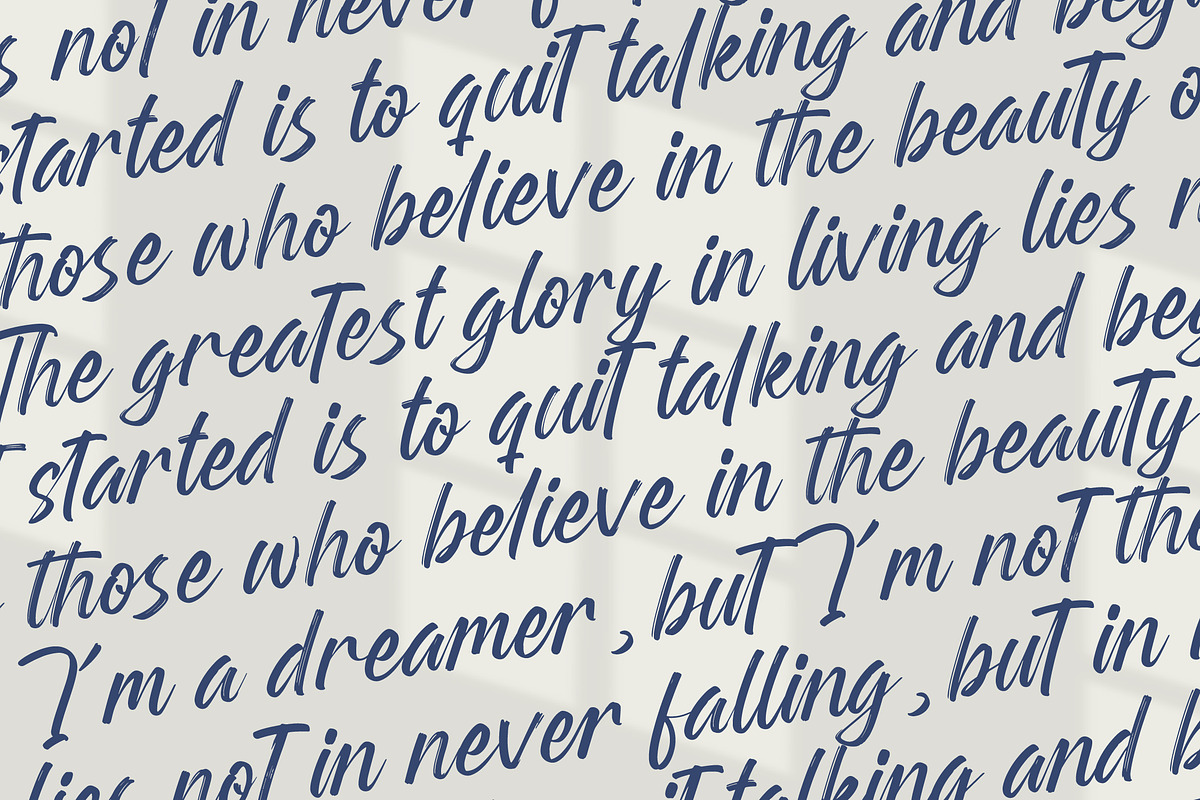 s not in never
started is to quit talking and beg
those who believe in the beauty o
The greatest glory in living lies n
started is to quit talking and beg
those who believe in the beauty
I'm a dreamer, but I'm not the
lies not in never falling, but in
t talking and b